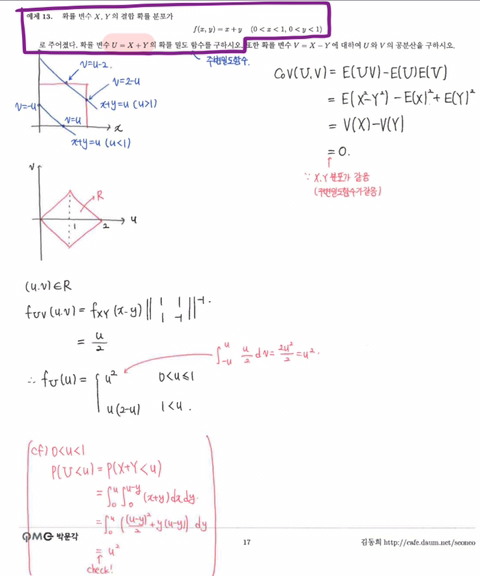 예제 13. 확률 변수 X, Y의 결합 확률 분포가
f(x, y) = x + y (0 < x < 1, 0 < y < 1)
로 주어졌다. 확률 변수 U = X + Y의 확률 밀도 함수를 구하시오. 또한 확률 변수 V = X − Y에 대하여 U와 V의 공분산을 구하시오.
주변밀도함수.
v=u-2
v=2-u
v=-u
x+y=u (u>1)
v=u
x
x+y=u (u<1)
Cov(U,V) = E(UV)-E(U)E(V)
= E(X²-Y²) - E(X)² + E(Y)²
= V(X)-V(Y)
= 0.
∵ X,Y 분포가 같음
(주변밀도함수가 같음)
v
R
1
2
u
(u,v)∈R
f_UV(u,v) = f_XY(x-y) || 1 1 1 -1 ||⁻¹.
= u/2
∫_{-u}^{u} u/2 dv = 2u²/2 = u².
∴ f_U(u) = { u² 0<u≤1
u(2-u) 1<u.
cf) 0<u<1
P(U<u) = P(X+Y<u)
= ∫_0^u ∫_0^{u-y} (x+y) dx dy.
= ∫_0^u ( (u-y)²/2 + y(u-y) ) dy
= u²
check!
QMG 박문각
17
김동희 http://cafe.daum.net/seoneo